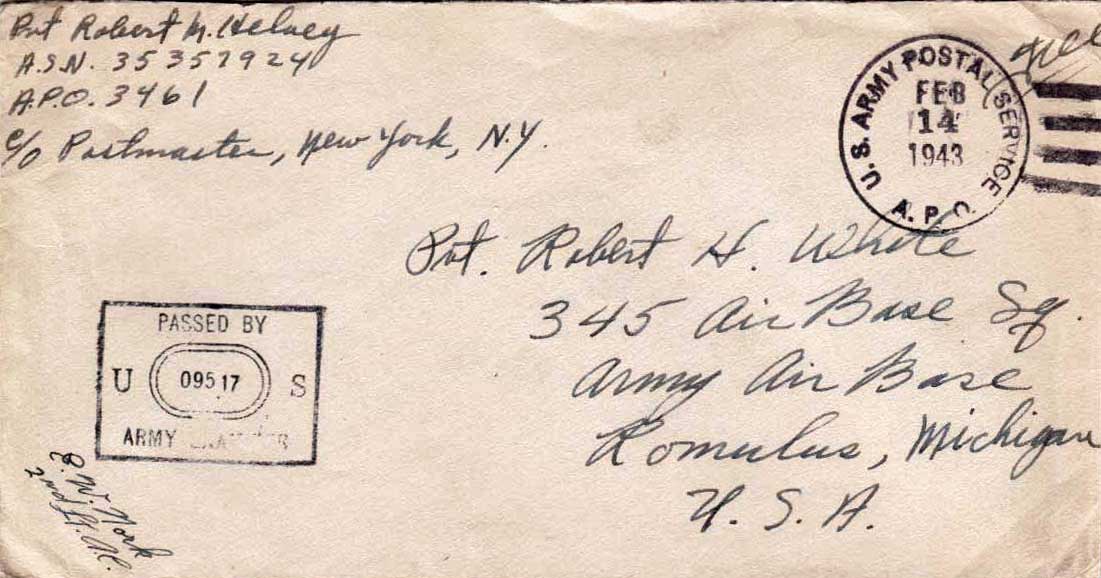 Pvt Robert M. Helvey
A.S.N. 35357924
A.P.O. 3461
c/o Postmaster, New York, N.Y.
U.S. ARMY POSTAL SERVICE
FEB
14
1943
A.P.O.
Free
Pvt. Robert H. White
345 Air Base Sq.
Army Air Base
Romulus, Michigan
U.S.A.
PASSED BY
U 09517 S
ARMY EXAMINER
E. W. York
2nd Lt. A.C.